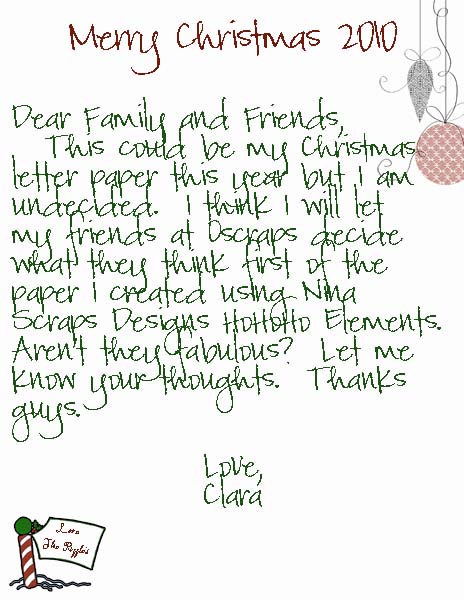 Merry Christmas 2010
Dear Family and Friends,
This could be my Christmas
letter paper this year but I am
undecided. I think I will let
my friends at Dscraps decide
what they think first of the
paper I created using Nina
Scraps Designs HoHoHo Elements.
Aren't they fabulous? Let me
know your thoughts. Thanks
guys.
Love,
Clara
Love
The